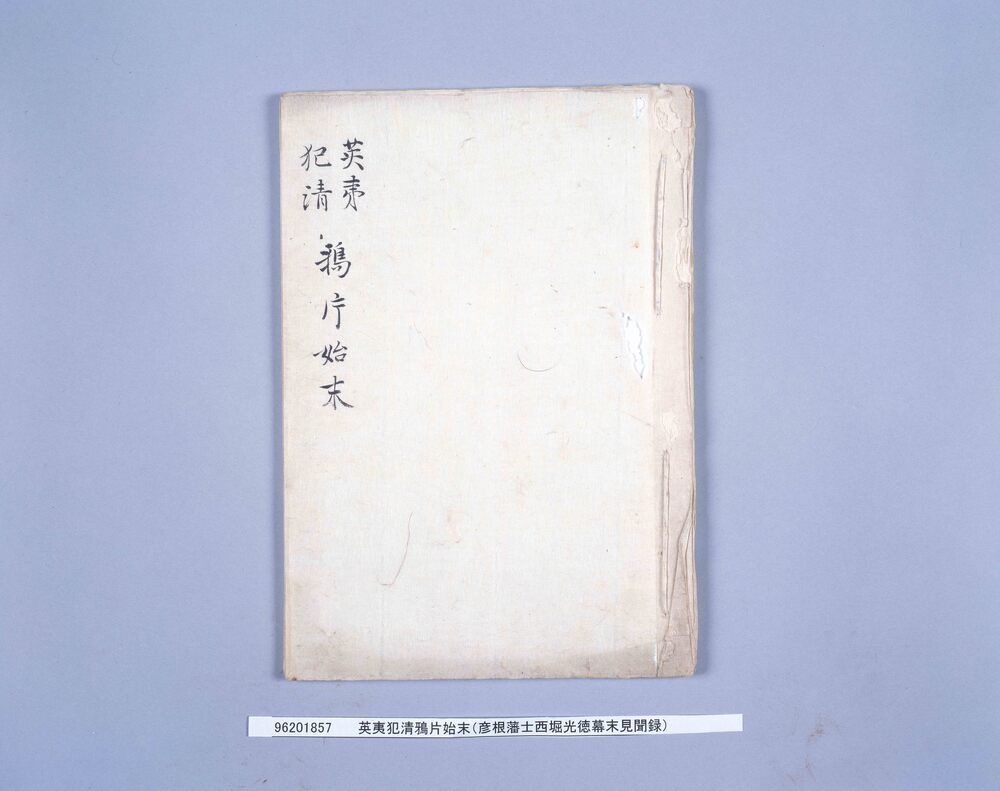 英夷
犯清
鴉片始末
96201857 英夷犯清鴉片始末(彦根藩士西堀光徳幕末見聞録)